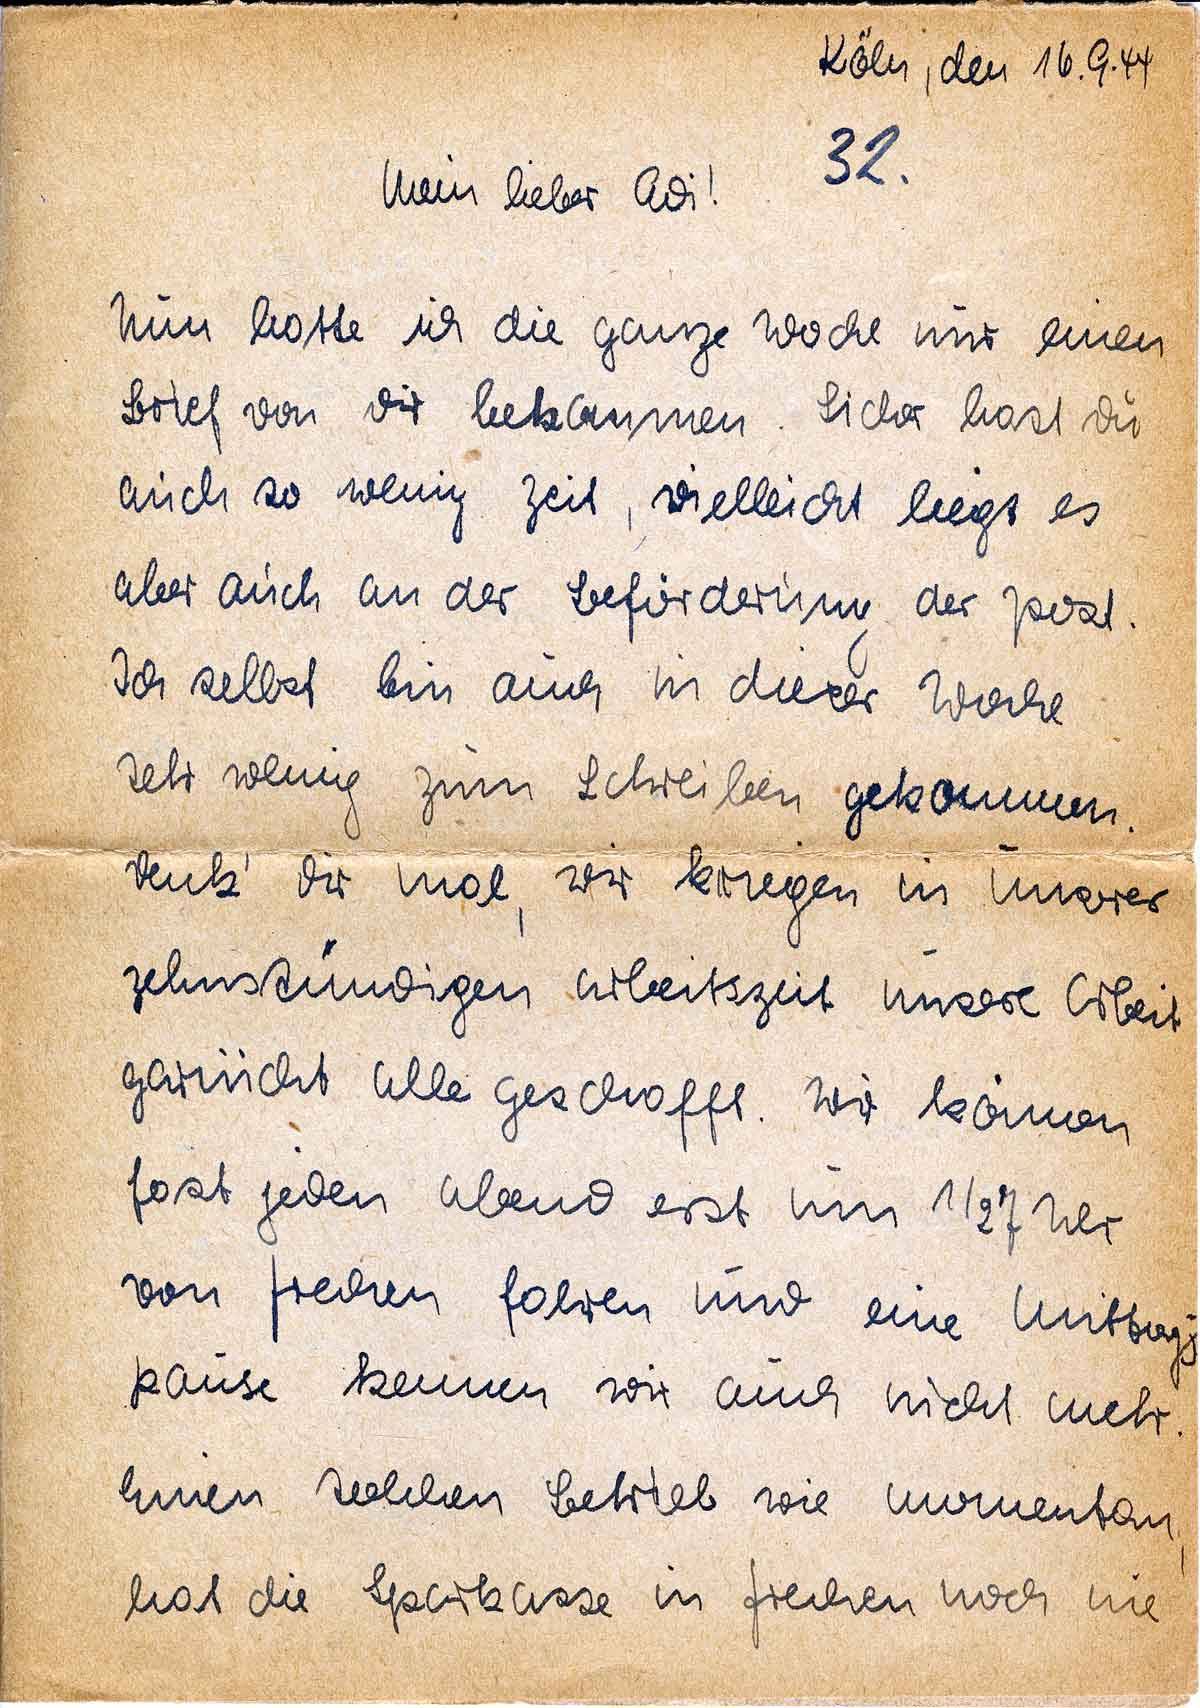 Köln, den 16.9.44
32.
Mein lieber Adi!
Nun hatte ich die ganze Woche nur einen
Brief von dir bekommen. Sicher hast du
auch so wenig Zeit, vielleicht liegt es
aber auch an der Beförderung der Post.
Ich selbst bin auch in dieser Woche
sehr wenig zum Schreiben gekommen.
Denk' dir mal, wir kriegen in unserer
zehnstündigen Arbeitszeit unsere Arbeit
garnicht alle geschafft. Wir können
fast jeden Abend erst um 1/27 Uhr
von Frechen fahren und eine Mittags-
pause kennen wir auch nicht mehr.
Einen solchen Betrieb wie momentan,
hat die Sparkasse in Frechen noch nie